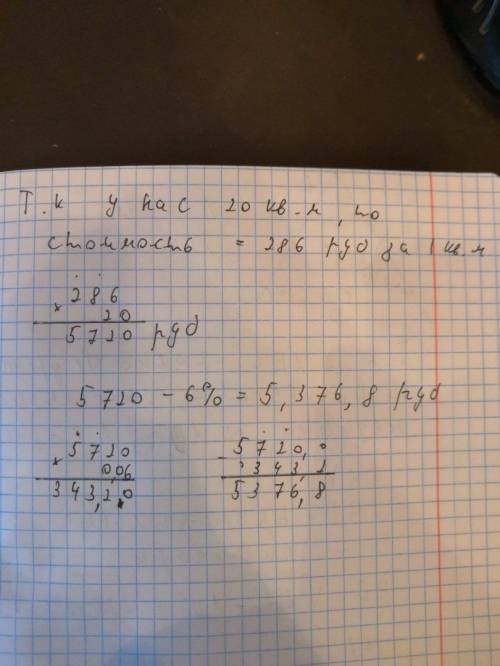 Т.к у нас 20 кв.м, то
стоимость = 286 руб за 1 кв.м
× 286
20
5720 руб
5720 - 6% = 5,376,8 руб
× 5720 - 5720,0
0,06 343,2
343,20 5376,8